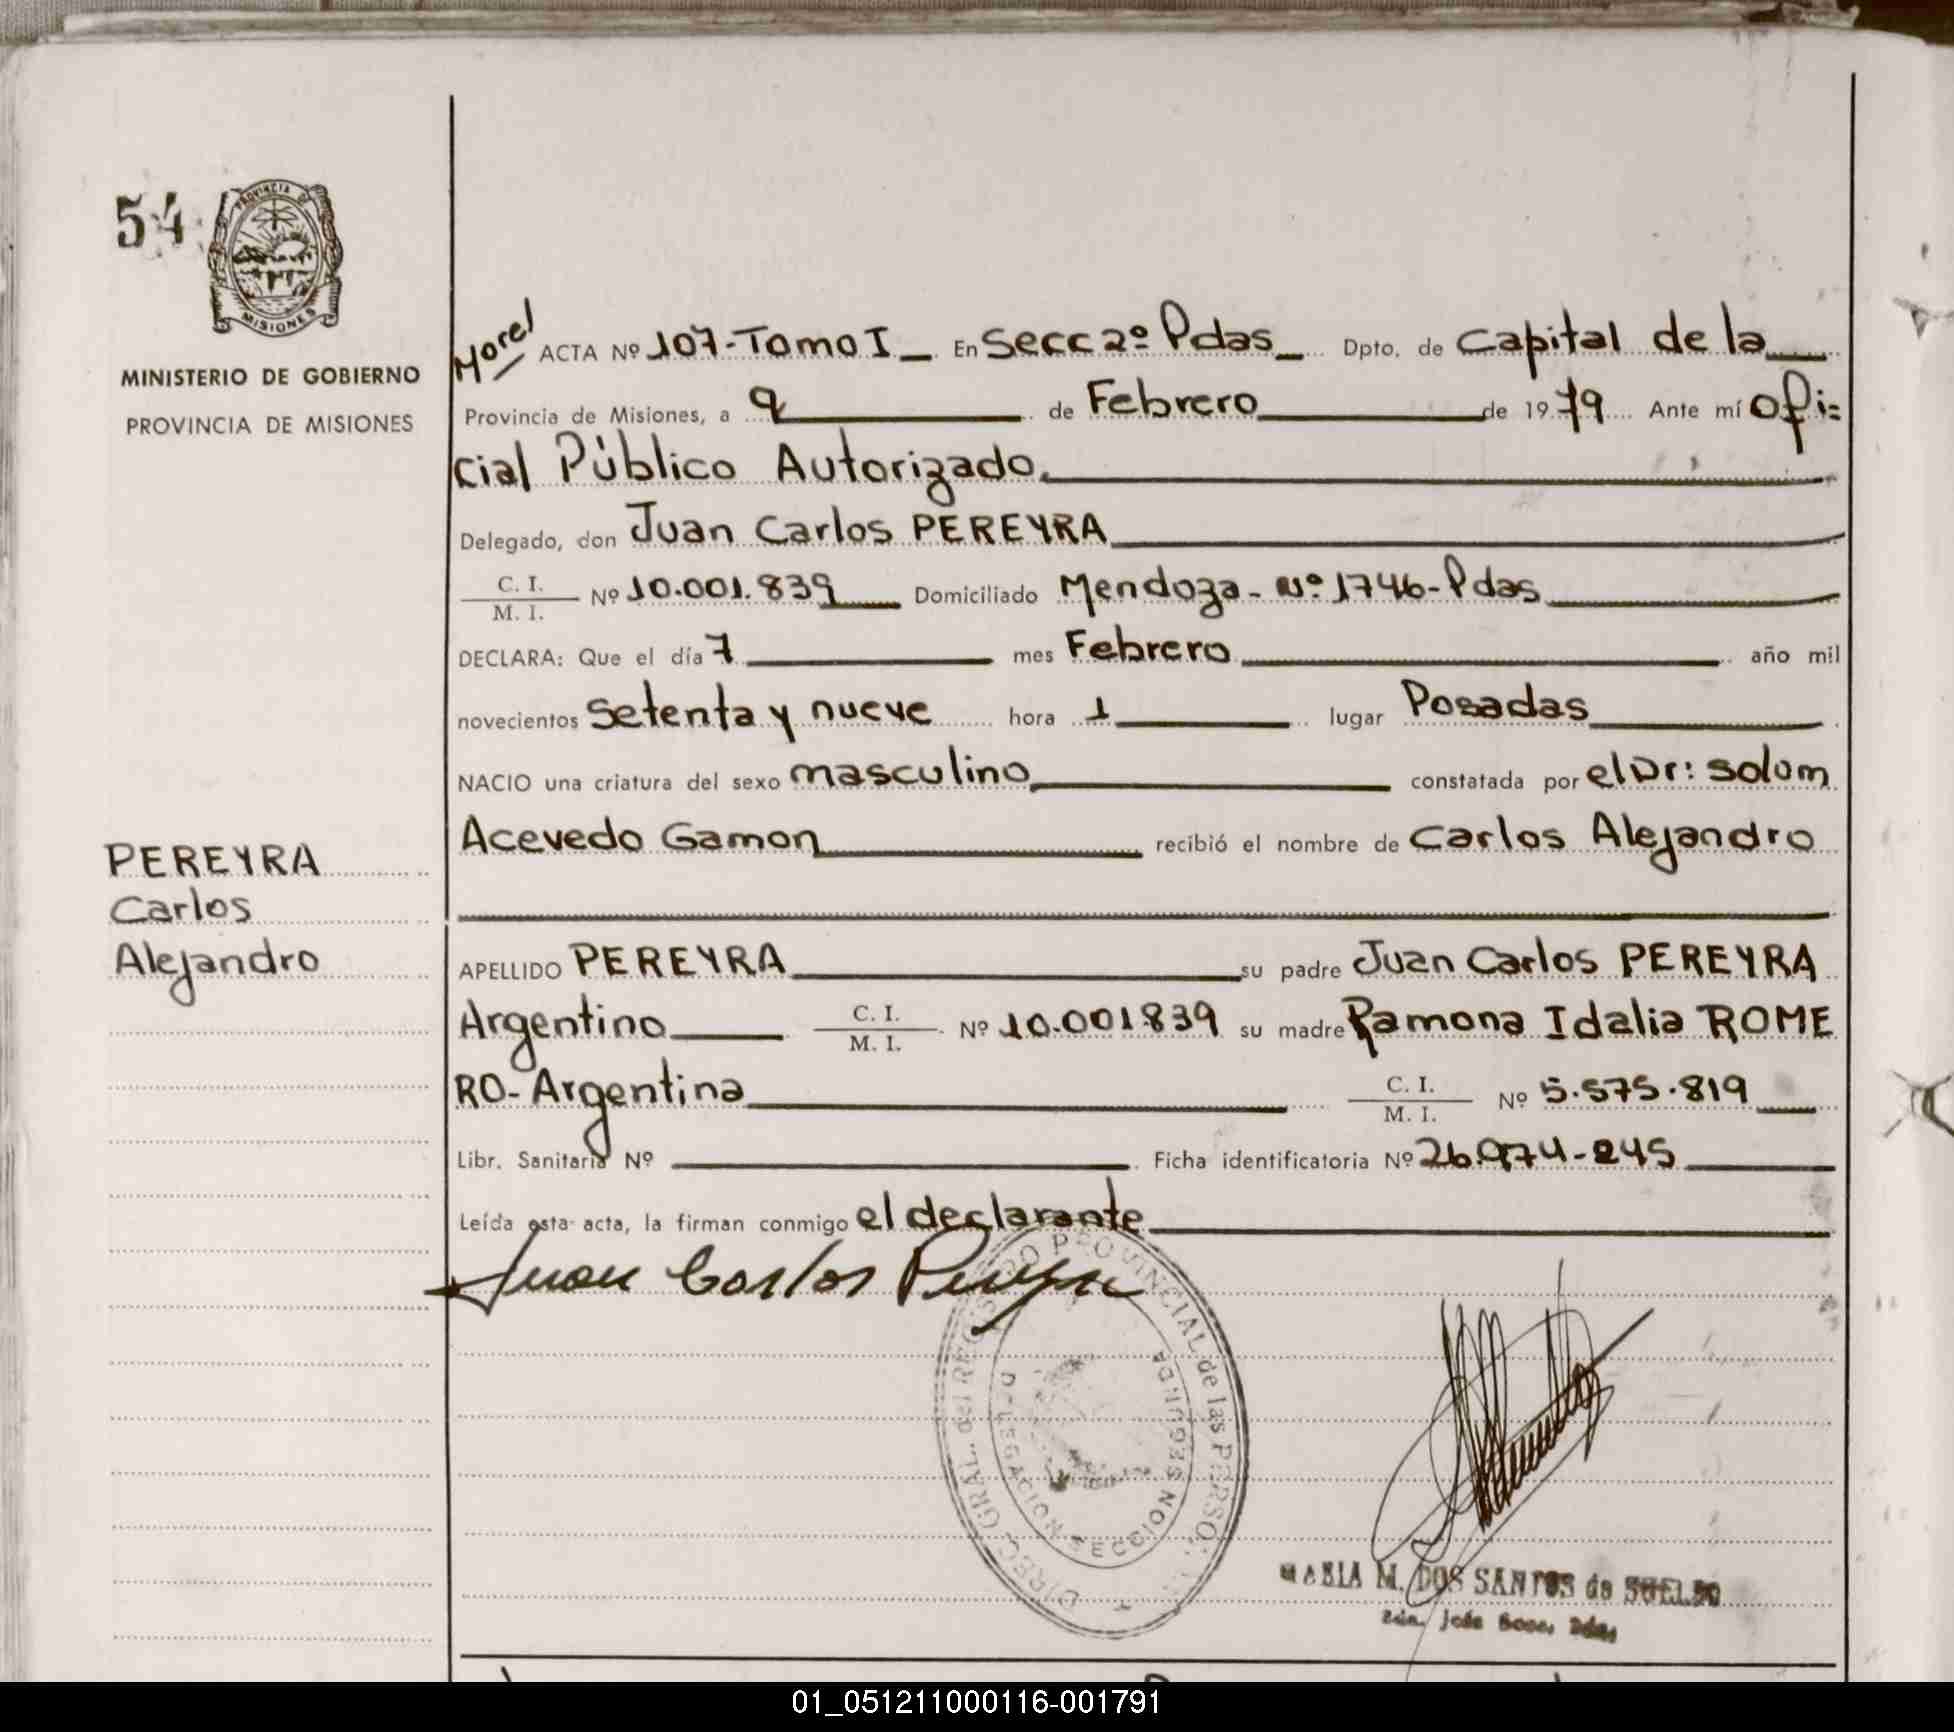 54
PROVINCIA DE
MISIONES
MINISTERIO DE GOBIERNO
PROVINCIA DE MISIONES
PEREYRA
Carlos
Alejandro
Morel
ACTA Nº 107-Tomo I_ En Secc 2º Pdas_ Dpto. de Capital de la
Provincia de Misiones, a 9 de Febrero de 1979 Ante mí Ofi=
cial Público Autorizado.
Delegado, don Juan Carlos PEREYRA
C. I.
M. I. Nº 10.001.839 Domiciliado Mendoza- Nº 1746-Pdas
DECLARA: Que el día 7 mes Febrero año mil
novecientos Setenta y nueve hora 1 lugar Posadas
NACIO una criatura del sexo masculino constatada por el Dr: Solom
Acevedo Gamon recibió el nombre de Carlos Alejandro
APELLIDO PEREYRA su padre Juan Carlos PEREYRA
Argentino C. I.
M. I. Nº 10.001.839 su madre Ramona Idalia ROME
RO-Argentina C. I.
M. I. Nº 5.575.819
Libr. Sanitaria Nº Ficha identificatoria Nº 26.974-245
Leída esta acta, la firman conmigo el declarante
Juan Carlos Pereyra
DIREC. GRAL. del REGISTRO PROVINCIAL de las PERSONAS
DELEGACION SECCION SEGUNDA
MARIA M. DOS SANTOS de SUELDO
01_051211000116-001791